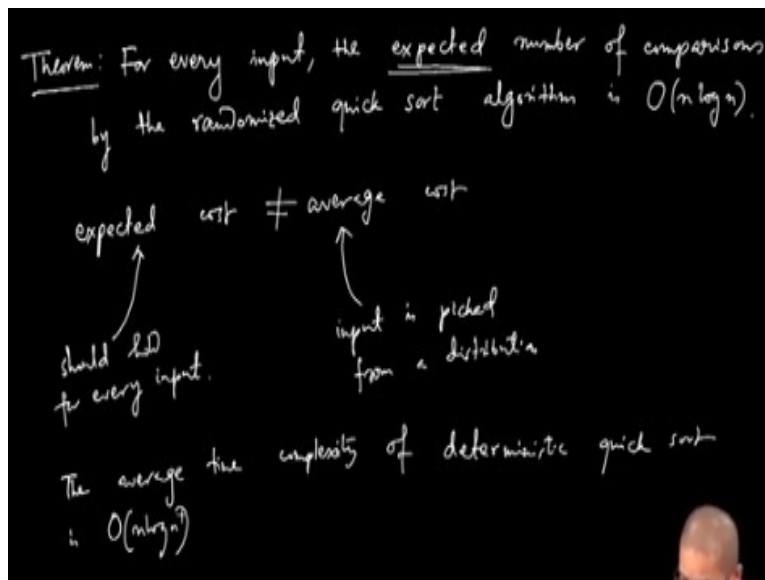 Theorem: For every input, the expected number of comparisons
by the randomized quick sort algorithm is O(n log n).
expected cost ≠ average cost
should hold
for every input.
input is picked
from a distribution
The average time complexity of deterministic quick sort
is O(n log n)